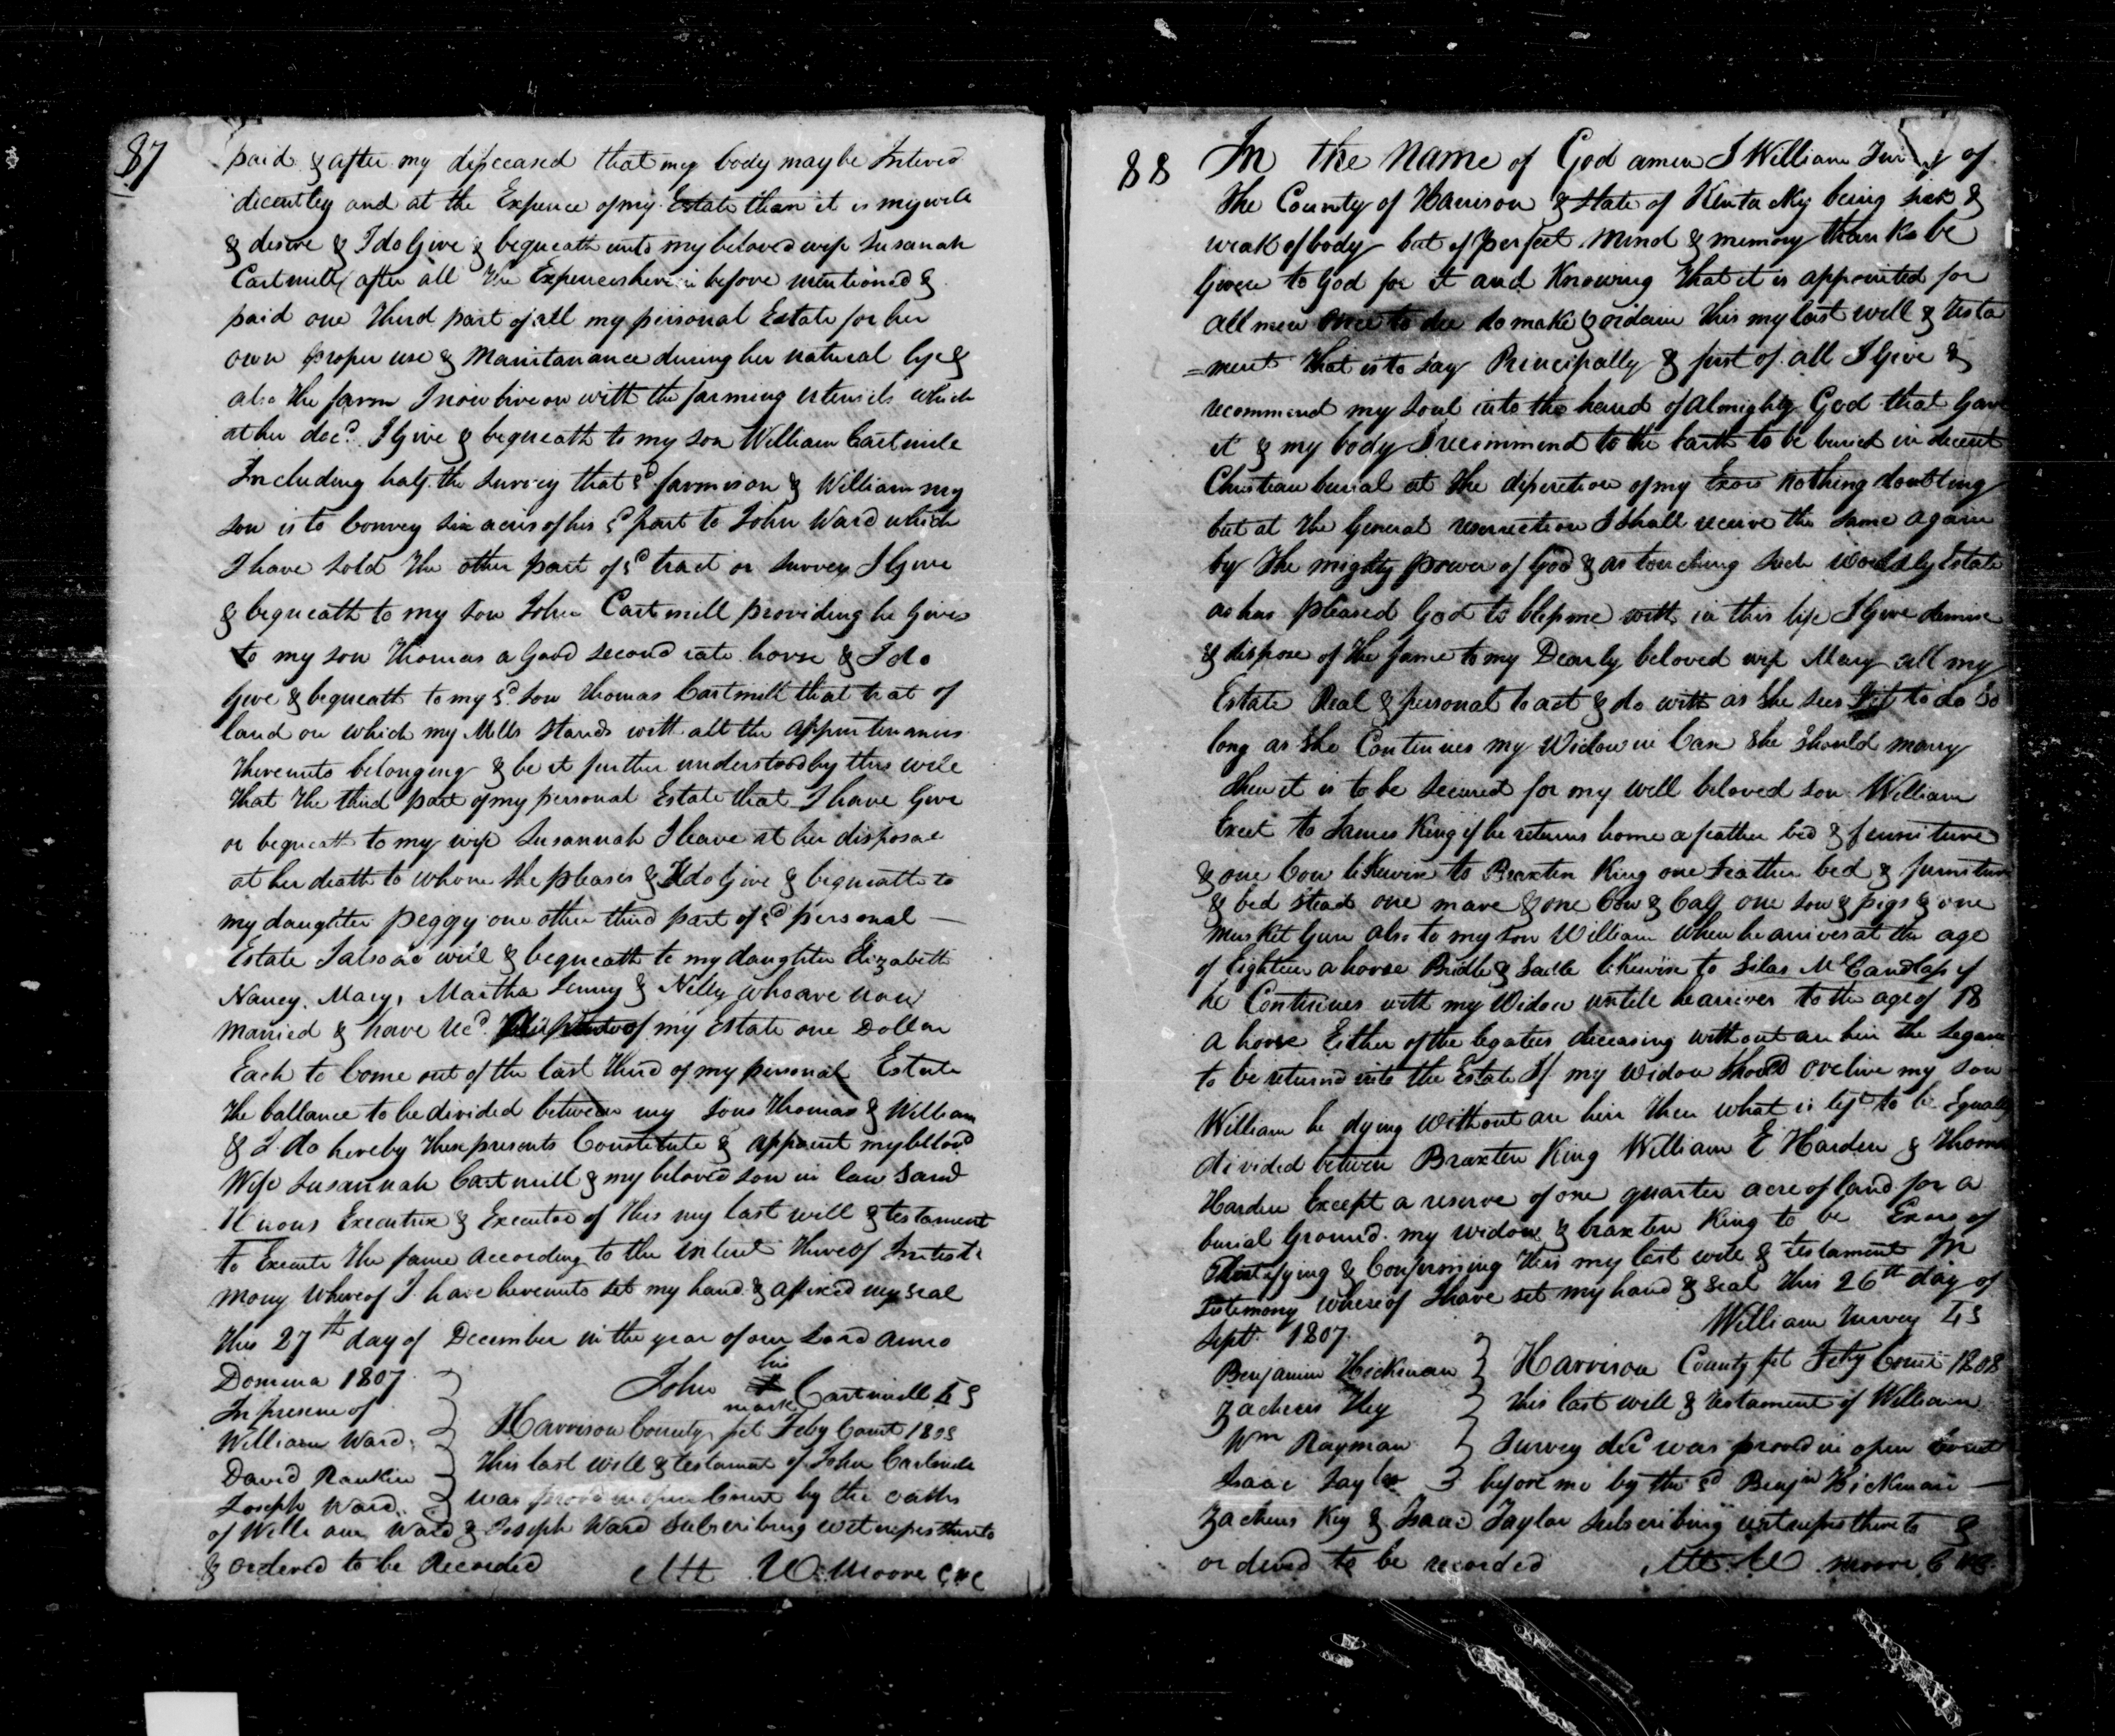 87
paid & after my disceased that my body may be Intered
decentley and at the Expence of my Estate than it is my will
& desire & I do Give & bequeath unto my beloved wife Susanah
Cartmill after all the Expences herein before mentioned &
paid one third part of all my personal Estate for her
own proper use & Maintanance during her natural life &
also the farm I now live on with the farming utensils which
at her decd. I Give & bequeath to my son William Cartmile
Including half the survey that sd farm is on & William my
son is to Convey six acres of his sd part to John Ward which
I have sold the other part of sd tract or survey I Give
& bequeath to my son John Cartmill providing he Gives
to my son Thomas a Good second rate horse & I do
Give & bequeath to my sd. son Thomas Cartmill that trat of
land on which my Mills stands with all the appurtenances
thereunto belonging & be it further understood by this will
that the third part of my personal Estate that I have Give
or bequeath to my wife Susannah I leave at her disposal
at her death to whom she pleases & I do Give & bequeath to
my daughter peggy one other third part of sd personal —
Estate I also do will & bequeath to my daughter Elizabeth
Nancy, Mary, Martha Jenny & Nelly who are now
married & have Recd. of my Estate one Dollar
Each to Come out of the last third of my personal Estate
the ballance to be divided between my sons Thomas & William
& I do hereby these presents Constitute & appoint my beloved
Wife Susannah Cartmill & my beloved son in law
Executrix & Executor of this my last will & testament
to Execute the same according to the intent thereof In testi
mony whereof I have hereunto set my hand & afixed my seal
this 27th day of December in the year of our Lord anno
Domina 1807
John his mark Cartmill LS
In presene of
William Ward
David Rankin
Joseph Ward
Harrison County sct Feby Court 1808
This last will & testament of John Cartmile
was proved in open Court by the oaths
of William Ward & Joseph Ward Subscribing witnesses thereto
& ordered to be Recorded
Att W. Moore CHC
88
In the Name of God amen I William of
the County of Harrison & State of Kentucky being sick &
weak of body but of perfect Mind & memory thanks be
Given to God for it and Knowing that it is appointed for
all men once to die do make & ordain this my last will & testa
=ment that is to say Principally & first of all I Give &
recommend my soul into the hand of Almighty God that Gave
it & my body I recommend to the Earth to be buried in decent
Christian burial at the discretion of my Exors Nothing doubting
but at the General resurrection I shall receive the same again
by the mighty power of God & as touching such worldly Estate
as has pleased God to bless me with in this life I Give demise
& dispose of the same to my Dearly beloved wife Mary all my
Estate Real & personal to act & do with as she sees fit to do So
long as she Continues my Widow in Case she should marry
then it is to be secured for my well beloved son William
Excet to James King if he returns home a feather bed & furniture
& one Cow likewise to Braxten King one Feather bed & furniture
& bed stead one mare & one Cow & Calf one sow & pigs & one
musket Gun also to my son William when he arrives at the age
of Eighteen a horse Bridle & Sadle likewise to Silas McCandlass if
he Continues with my Widow untill he arrives to the age of 18
a horse Either of the legatees deceasing without an heir the Legacy
to be returnd into the Estate If my widow should ovelive my son
William he dying without an heir then what is left to be Equally
divided between Braxten King William E Harden & Thomas
Harden Except a reserve of one quarter acre of land for a
burial Ground. my widow & braxten King to be Exors of
this & Confirming this my last will & testament In
testimony whereof I have set my hand & seal this 26th day of
Sept 1807.
William Survey LS
Benjamin Hickman
Zacheus Key
Wm Rayman
Isaac Taylor
Harrison County sct Feby Court 1808
this last will & testament of William
Survey decd was proved in open Court
before me by the sd Benjn Hickman —
Zacheus Key & Isaac Taylor subscribing witnesses thereto &
ordered to be recorded
Att. W moore CHC.